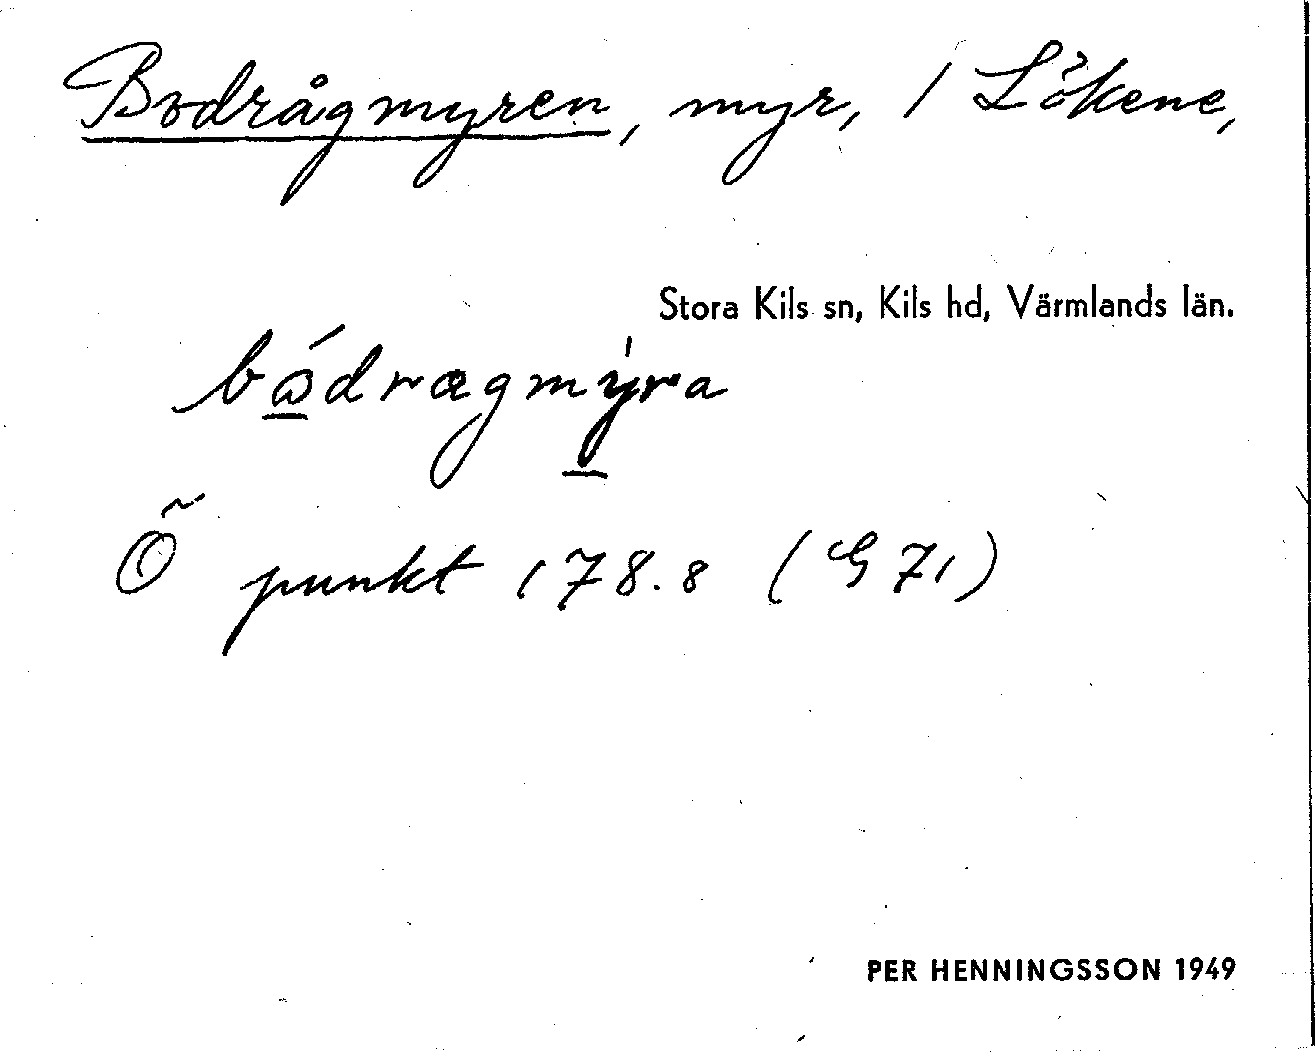 Bodrågmyren, myr, / Lökene,
Stora Kils sn, Kils hd, Värmlands län.
bådrægmy̍ra
Õ punkt 178.8 (G 71)
PER HENNINGSSON 1949